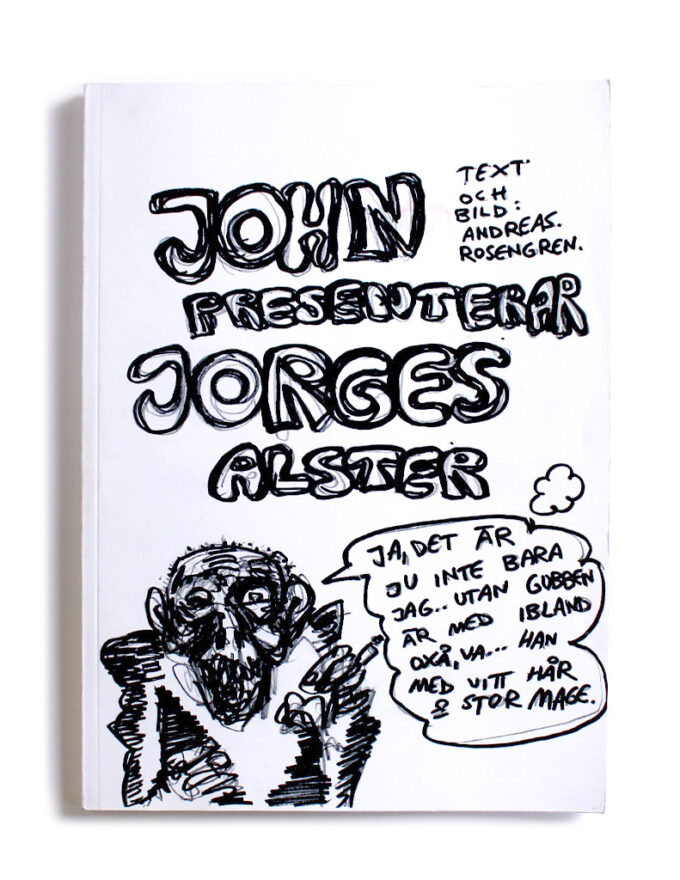 JOHN
PRESENTERAR
JORGES
ALSTER
TEXT
OCH
BILD:
ANDREAS.
ROSENGREN.
JA, DET ÄR
JU INTE BARA
JAG.. UTAN GUBBEN
ÄR MED IBLAND
OXÅ, VA... HAN
MED VITT HÅR
O STOR MAGE.